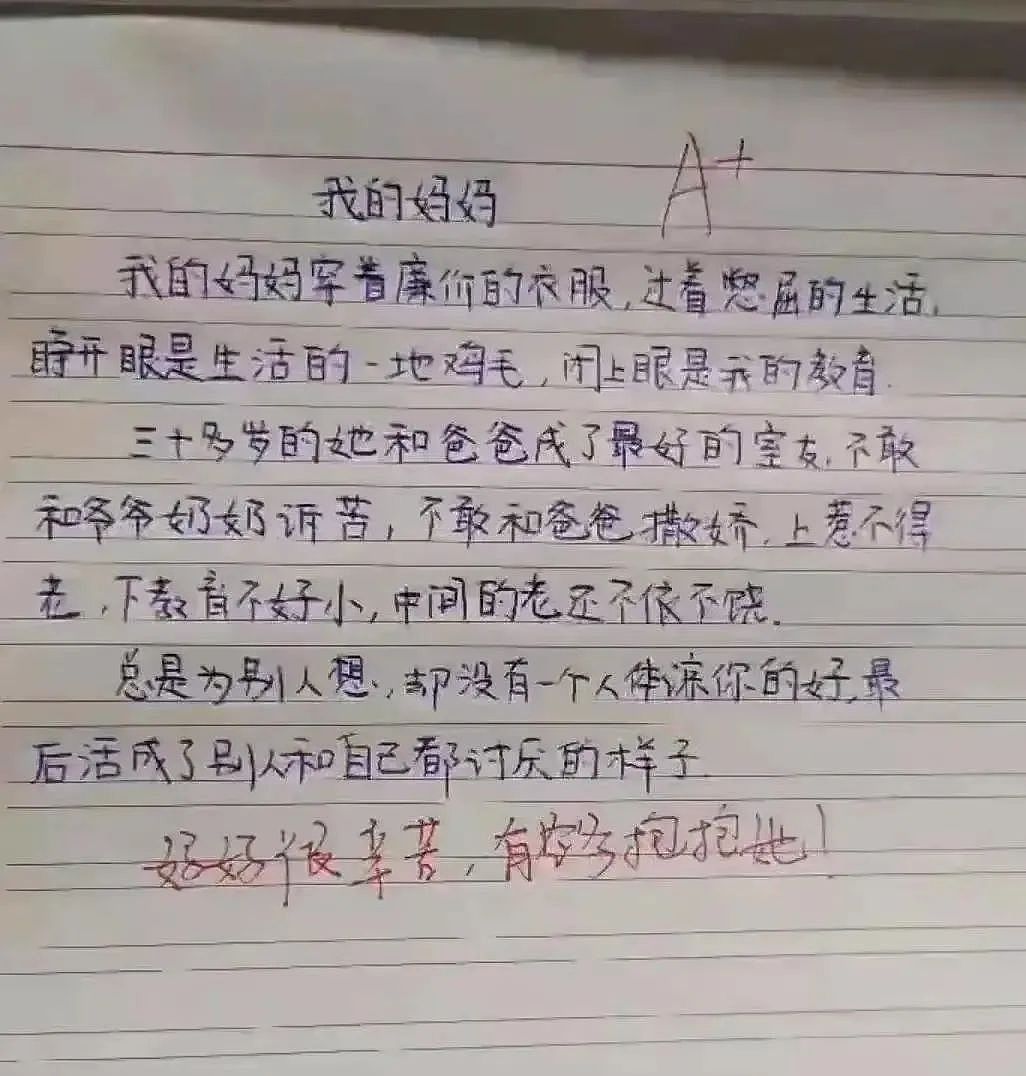 A+
我的妈妈
我的妈妈穿着廉价的衣服,过着憋屈的生活,
睁开眼是生活的一地鸡毛,闭上眼是我的教育.
三十多岁的她和爸爸成了最好的室友,不敢
和爷爷奶奶诉苦,不敢和爸爸撒娇,上惹不得
老,下教育不好小,中间的老还不依不饶.
总是为别人想,却没有一个人体谅你的好,最
后活成了别人和自己都讨厌的样子.
妈妈很辛苦,有空多抱抱她!